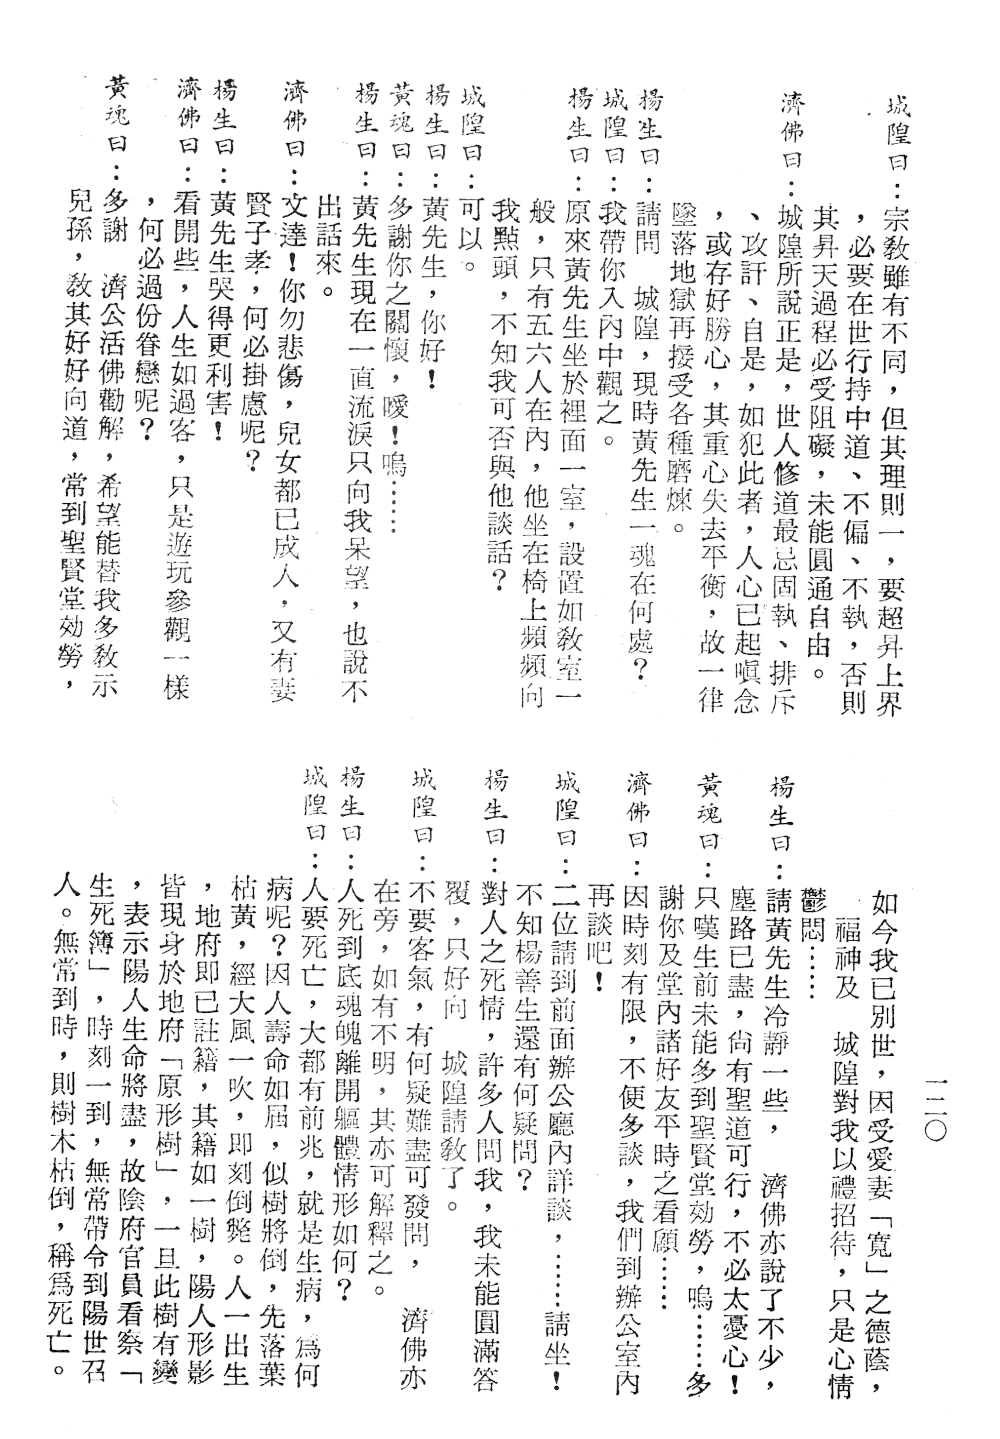 城隍曰：宗敎雖有不同，但其理則一，要超昇上界
，必要在世行持中道、不偏、不執，否則
其昇天過程必受阻礙，未能圓通自由。
濟佛曰：城隍所說正是，世人修道最忌固執、排斥
、攻訐、自是，如犯此者，人心已起嗔念
，或存好勝心，其重心失去平衡，故一律
墜落地獄再接受各種磨煉。
楊生曰：請問　城隍，現時黃先生一魂在何處？
城隍曰：我帶你入內中觀之。
楊生曰：原來黃先生坐於裡面一室，設置如敎室一
般，只有五六人在內，他坐在椅上頻頻向
我點頭，不知我可否與他談話？
城隍曰：可以。
楊生曰：黃先生，你好！
黃魂曰：多謝你之關懷，噯！嗚……
楊生曰：黃先生現在一直流淚只向我呆望，也說不
出話來。
濟佛曰：文達！你勿悲傷，兒女都已成人，又有妻
賢子孝，何必掛慮呢？
楊生曰：黃先生哭得更利害！
濟佛曰：看開些，人生如過客，只是遊玩參觀一樣
，何必過份眷戀呢？
黃魂曰：多謝　濟公活佛勸解，希望能替我多敎示
兒孫，敎其好好向道，常到聖賢堂効勞，
如今我已別世，因受愛妻「寬」之德蔭，
福神及　城隍對我以禮招待，只是心情
鬱悶……
楊生曰：請黃先生冷靜一些，　濟佛亦說了不少，
塵路已盡，尙有聖道可行，不必太憂心！
黃魂曰：只嘆生前未能多到聖賢堂効勞，嗚……多
謝你及堂內諸好友平時之看顧……
濟佛曰：因時刻有限，不便多談，我們到辦公室內
再談吧！
城隍曰：二位請到前面辦公廳內詳談，……請坐！
不知楊善生還有何疑問？
楊生曰：對人之死情，許多人問我，我未能圓滿答
覆，只好向　城隍請敎了。
城隍曰：不要客氣，有何疑難盡可發問，　濟佛亦
在旁，如有不明，其亦可解釋之。
楊生曰：人死到底魂魄離開軀體情形如何？
城隍曰：人要死亡，大都有前兆，就是生病，爲何
病呢？因人壽命如屆，似樹將倒，先落葉
枯黃，經大風一吹，即刻倒斃。人一出生
，地府即已註籍，其籍如一樹，陽人形影
皆現身於地府「原形樹」，一旦此樹有變
，表示陽人生命將盡，故陰府官員看察「
生死簿」，時刻一到，無常帶令到陽世召
人。無常到時，則樹木枯倒，稱爲死亡。
一二〇